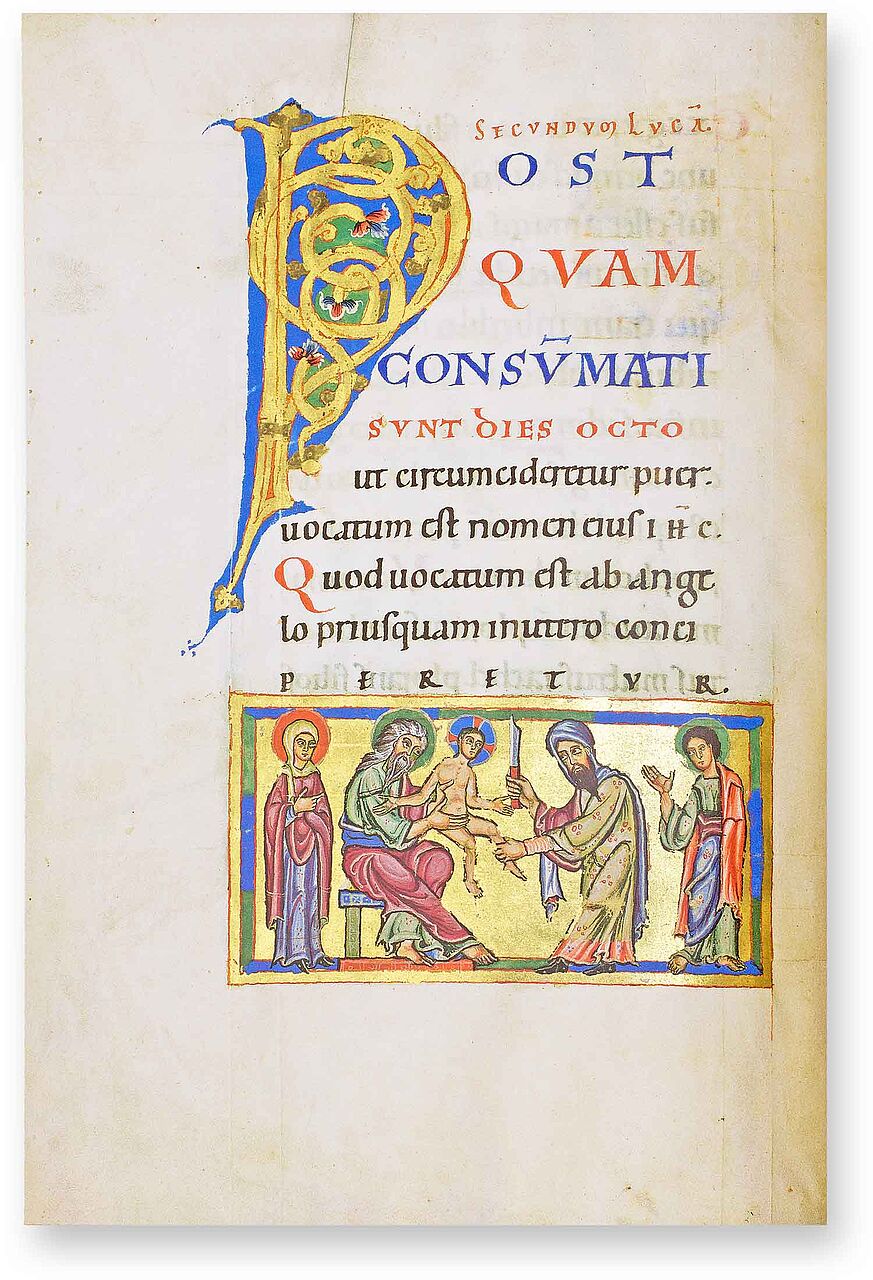 SECVNDVM LVCĀ.
POST
QVAM
CONSV̄MATI
SVNT DIES OCTO
ut circumcideretur puer.
uocatum est nomen eius IH̄C.
Quod uocatum est ab ange
lo priusquam in utero conci
PERETVR.